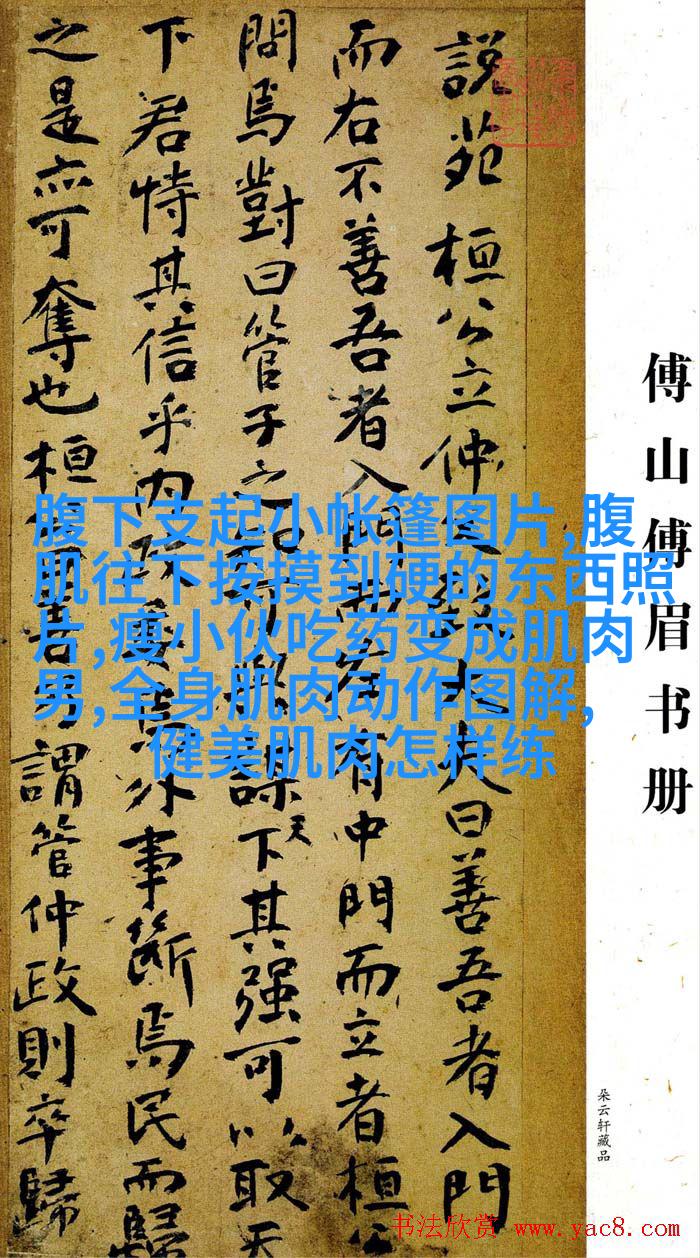 傅山傅眉书册
朵云轩藏品
説苑 桓公立仲大夫曰善吾者入門
而右不善吾者入門而左有中門而立者桓公
問焉對曰管子之可謀天下其强可以取天
下君恃其信乎内政委焉外事斷焉民而歸
之是亦可奪也桓公曰善乃謂管仲政則卒歸
腹下支起小帐篷图片,腹
肌往下按摸到硬的东西照
片,瘦小伙吃药变成肌肉
男,全身肌肉动作图解,
健美肌肉怎样练
书法欣赏 www.yac8.com